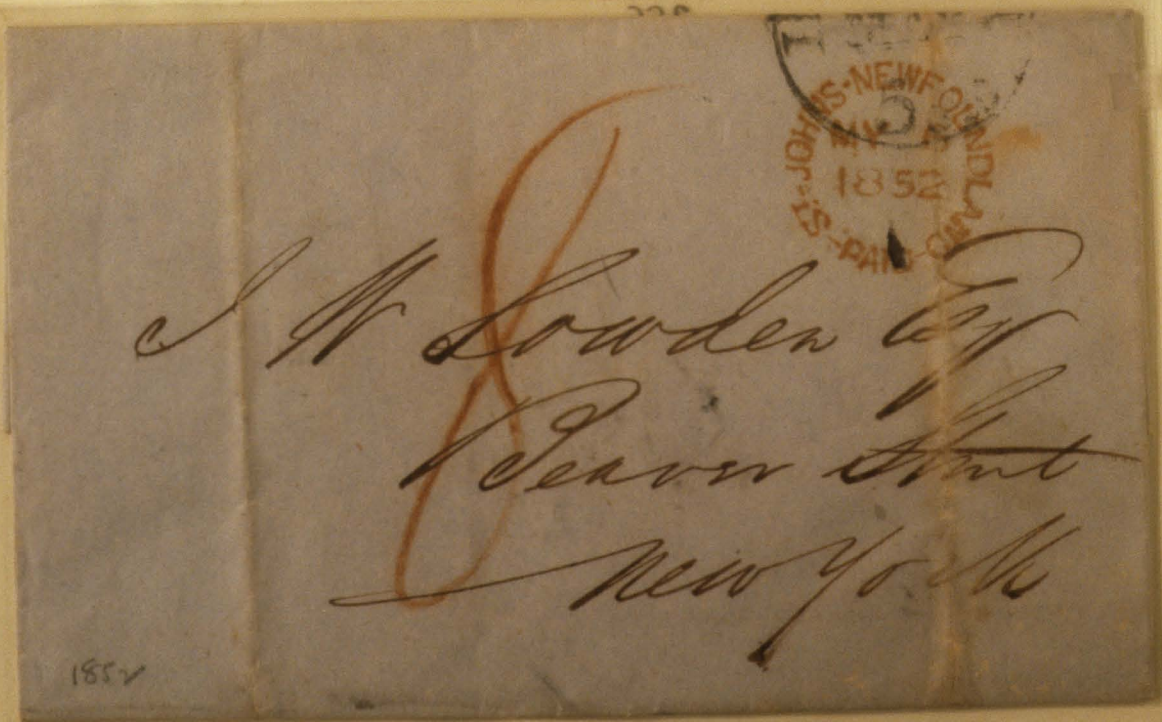 5
ST. JOHNS-NEWFOUNDLAND
MY
1852
PAID
8
J W Lowden Esq
Beaver Street
New York
1852